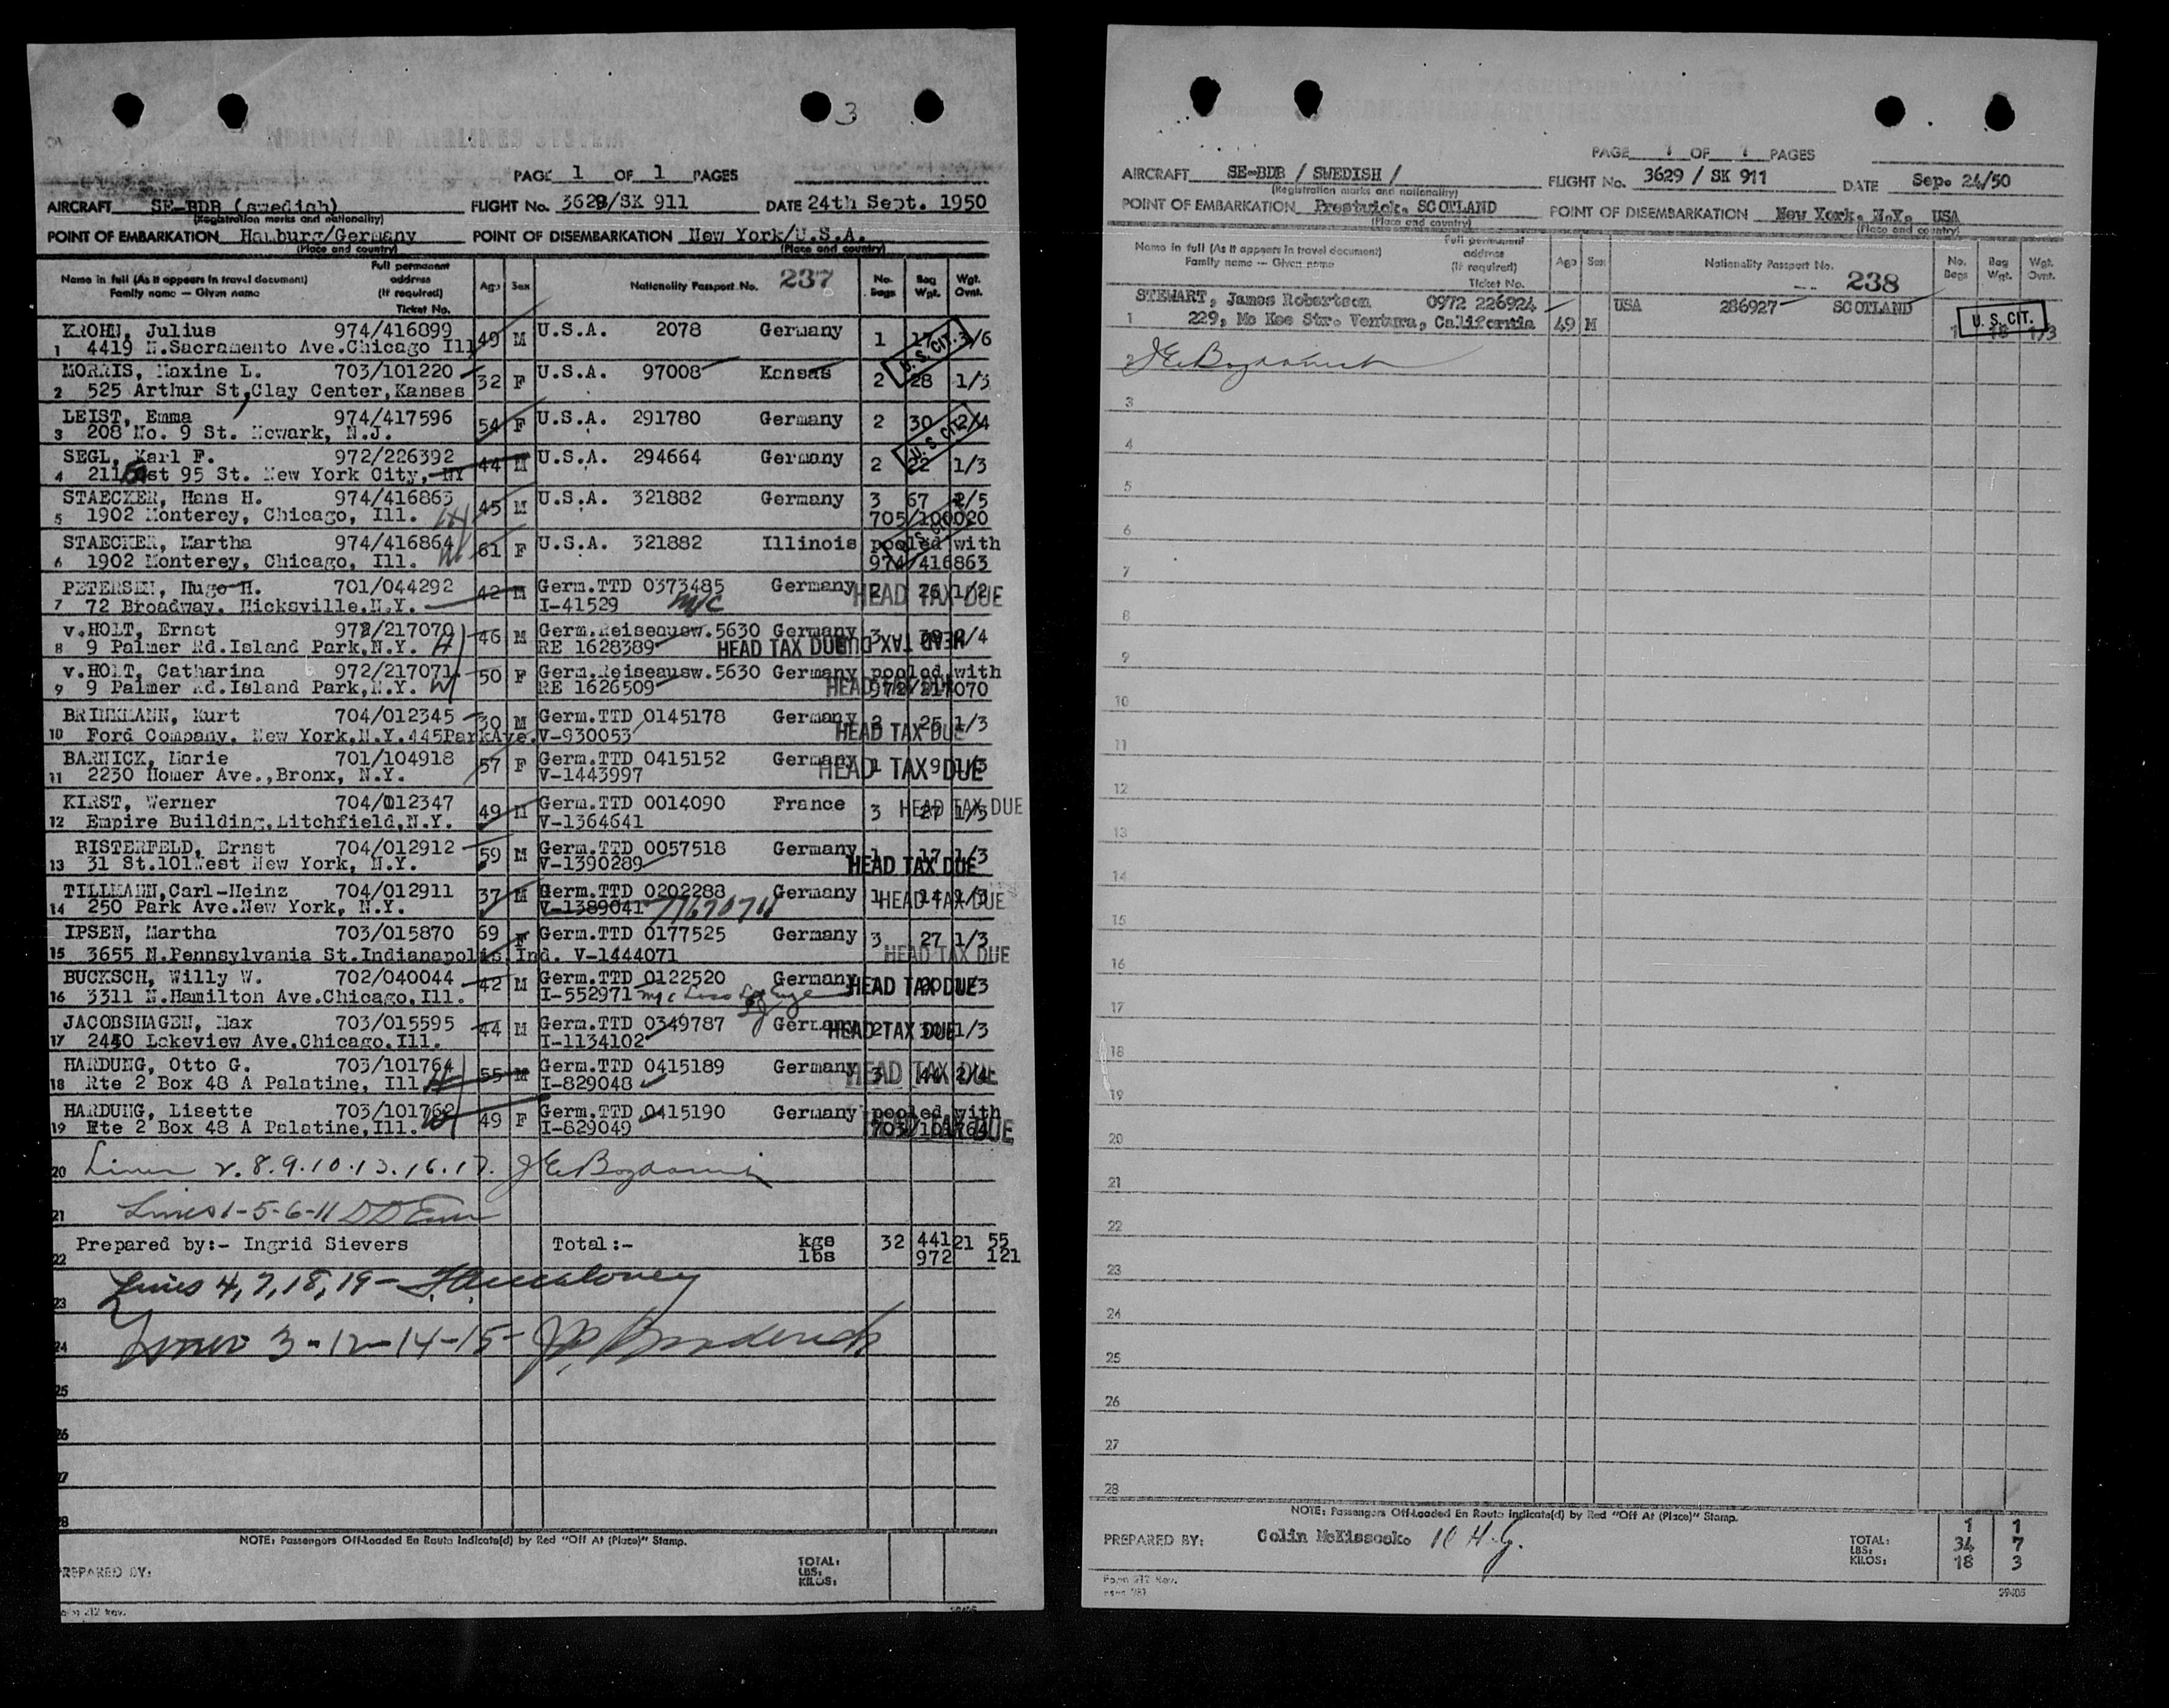 3
PAGE 1 OF 1 PAGES
AIRCRAFT SE-BDB (swedish) FLIGHT No. 3629/SK 911 DATE 24th Sept. 1950
(Registration marks and nationality)
POINT OF EMBARKATION Hamburg/Germany POINT OF DISEMBARKATION New York/U.S.A.
(Place and country) (Place and country)
Name in full (As it appears in travel document) Family name — Given name Full permanent address (If required) Ticket No. Age Sex Nationality Passport No. 237 No. Bags Bag Wgt. Wgt. Ovnt.
KROHN, Julius 974/416899 49 M U.S.A. 2078 Germany 1 17 3/6
1 4419 N.Sacramento Ave.Chicago Ill
U.S. CIT.
MORRIS, Maxine L. 703/101220 32 F U.S.A. 97008 Kansas 2 28 1/3
2 525 Arthur St,Clay Center,Kansas
LEIST, Emma 974/417596 54 F U.S.A. 291780 Germany 2 30 2/4
3 208 No. 9 St. Newark, N.J.
U.S. CIT.
SEGL, Karl F. 972/226392 44 M U.S.A. 294664 Germany 2 22 1/3
4 211 East 95 St. New York City, NY
STAECKER, Hans H. 974/416863 45 M U.S.A. 321882 Germany 3 67 2/5
5 1902 Monterey, Chicago, Ill. H 705/100020
STAECKER, Martha 974/416864 61 F U.S.A. 321882 Illinois pooled with
6 1902 Monterey, Chicago, Ill. W 974/416863
PETERSEN, Hugo H. 701/044292 42 M Germ.TTD 0373485 Germany 2 26 1/2
7 72 Broadway. Hicksville.N.Y. I-41529 M/C HEAD TAX DUE
v.HOLT, Ernst 972/217070 46 M Germ.Reiseausw.5630 Germany 3 /4
8 9 Palmer Rd.Island Park,N.Y. H RE 1628389 HEAD TAX DUE
v.HOLT, Catharina 972/217071 50 F Germ.Reiseausw.5630 Germany pooled with
9 9 Palmer Rd.Island Park,N.Y. W RE 1626509 HEAD TAX DUE 972/217070
BRINKMANN, Kurt 704/012345 30 M Germ.TTD 0145178 Germany 2 25 1/3
10 Ford Company. New York,N.Y.445ParkAve. V-930053 HEAD TAX DUE
BARNICK, Marie 701/104918 57 F Germ.TTD 0415152 Germany 1 9 1/3
11 2230 Homer Ave.,Bronx, N.Y. V-1443997 HEAD TAX DUE
KIRST, Werner 704/012347 49 M Germ.TTD 0014090 France 3 27 1/3
12 Empire Building,Litchfield,N.Y. V-1364641 HEAD TAX DUE
BISTERFELD, Ernst 704/012912 59 M Germ.TTD 0057518 Germany 1 17 1/3
13 31 St.101West New York, N.Y. V-1390289 HEAD TAX DUE
TILLMANN,Carl-Heinz 704/012911 37 M Germ.TTD 0202288 Germany 1 14 1/3
14 250 Park Ave.New York, N.Y. V-1389041 HEAD TAX DUE
IPSEN, Martha 703/015870 69 F Germ.TTD 0177525 Germany 3 27 1/3
15 3655 N.Pennsylvania St.Indianapolis,Ind. V-1444071 HEAD TAX DUE
BUCKSCH, Willy W. 702/040044 42 M Germ.TTD 0122520 Germany 20 1/3
16 3311 N.Hamilton Ave.Chicago.Ill. I-552971 HEAD TAX DUE
JACOBSHAGEN, Max 703/015595 44 M Germ.TTD 0349787 Germany 2 1/3
17 2440 Lakeview Ave.Chicago.Ill. I-1134102 HEAD TAX DUE
HARDUNG, Otto G. 703/101764 55 M Germ.TTD 0415189 Germany 3 44 2/4
18 Rte 2 Box 48 A Palatine, Ill. H I-829048 HEAD TAX DUE
HARDUNG, Lisette 703/101762 49 F Germ.TTD 0415190 Germany pooled with
19 Rte 2 Box 48 A Palatine,Ill. W I-829049 703/101764 HEAD TAX DUE
20 Lines 2.8.9.10.13.16.17. J E Bogdanich
21 Lines 1-5-6-11
22 Prepared by:- Ingrid Sievers Total:- kgs 32 441 21 55
lbs 972 121
23 Lines 4,7,18,19-
24 Lines 3-12-14-15-
25
26
27
28
NOTE: Passengers Off-Loaded En Route Indicate(d) by Red "Off At (Place)" Stamp.
PREPARED BY: TOTAL:
LBS:
KILOS:
Form 212 Rev.
PAGE 1 OF 1 PAGES
AIRCRAFT SE-BDB / SWEDISH / FLIGHT No. 3629 / SK 911 DATE Sep. 24/50
(Registration marks and nationality)
POINT OF EMBARKATION Prestwick, SCOTLAND POINT OF DISEMBARKATION New York, N.Y. USA
(Place and country) (Place and country)
Name in full (As it appears in travel document) Family name — Given name Full permanent address (If required) Ticket No. Age Sex Nationality Passport No. 238 No. Bags Bag Wgt. Wgt. Ovnt.
STEWART, James Robertson 0972 226924 USA 286927 SCOTLAND
1 229, Mc Kee Str. Ventura, California 49 M 1 18 1/3
U. S. CIT.
2 J E Bogdanich
3
4
5
6
7
8
9
10
11
12
13
14
15
16
17
18
19
20
21
22
23
24
25
26
27
28
NOTE: Passengers Off-Loaded En Route Indicate(d) by Red "Off At (Place)" Stamp.
PREPARED BY: Colin McKissock. TOTAL: 1 1
LBS: 34 7
KILOS: 18 3
Form 212 Rev.
29405